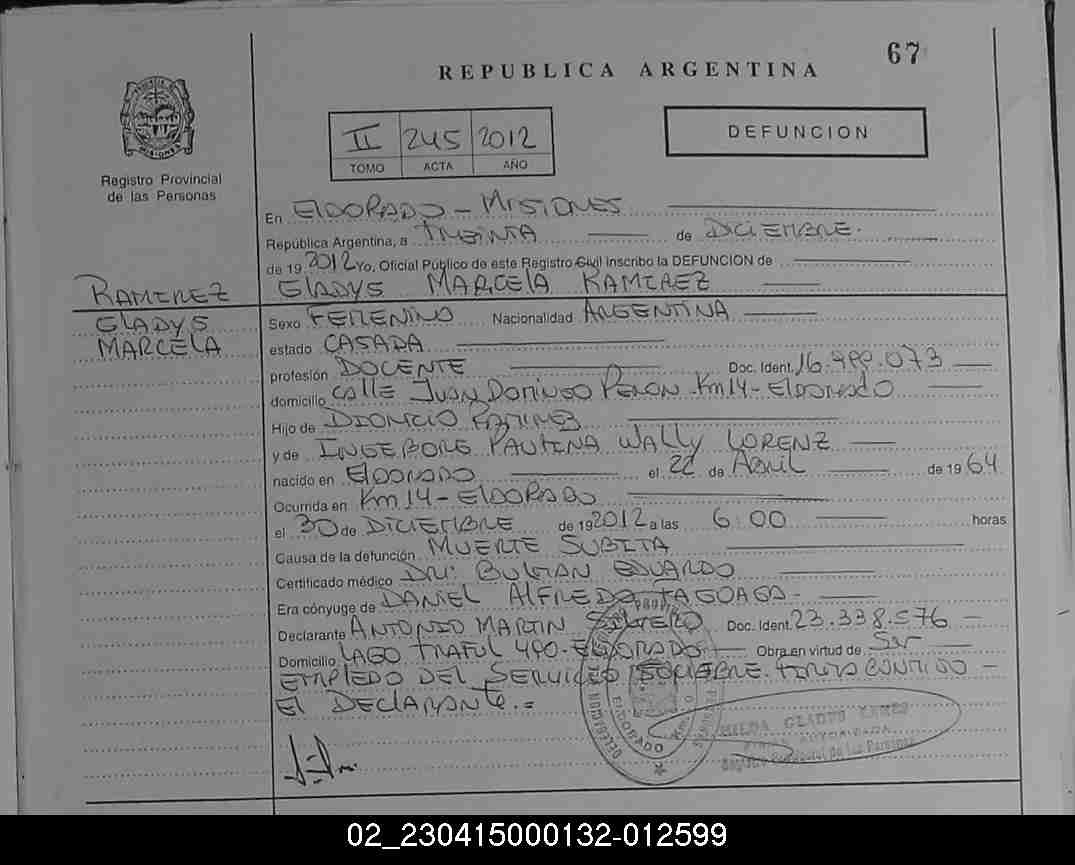 67
REPUBLICA ARGENTINA
II 245 2012
TOMO ACTA AÑO
DEFUNCION
Registro Provincial
de las Personas
En ELDORADO - MISIONES
República Argentina, a TREINTA de DICIEMBRE.
de 19 2012 Yo, Oficial Público de este Registro Civil inscribo la DEFUNCION de
RAMIREZ
GLADYS
MARCELA
GLADYS MARCELA RAMIREZ
Sexo FEMENINO Nacionalidad ARGENTINA
estado CASADA
profesión DOCENTE Doc. Ident. 16.499.073
domicilio CALLE JUAN DOMINGO PERON Km 14 - ELDORADO
Hijo de DIONICIO RAMIREZ
y de INGEBORG PAULINA WALLY LORENZ
nacido en ELDORADO el 22 de ABRIL de 19 64
Ocurrida en Km 14 - ELDORADO
el 30 de DICIEMBRE de 19 2012 a las 6:00 horas
Causa de la defunción MUERTE SUBITA
Certificado médico DR: EDUARDO
Era cónyuge de DANIEL ALFREDO TAGOAGA
Declarante ANTONIO MARTIN Doc. Ident. 23.338.576
Domicilio LAGO TRAFUL 490 - ELDORADO Obra en virtud de SER
EMPLEDO DEL SERVICIO FIRMA CONTIGO
EL DECLARANTE.=
ELDORADO Km
GLADYS
Registro Provincial de las Personas
02_230415000132-012599